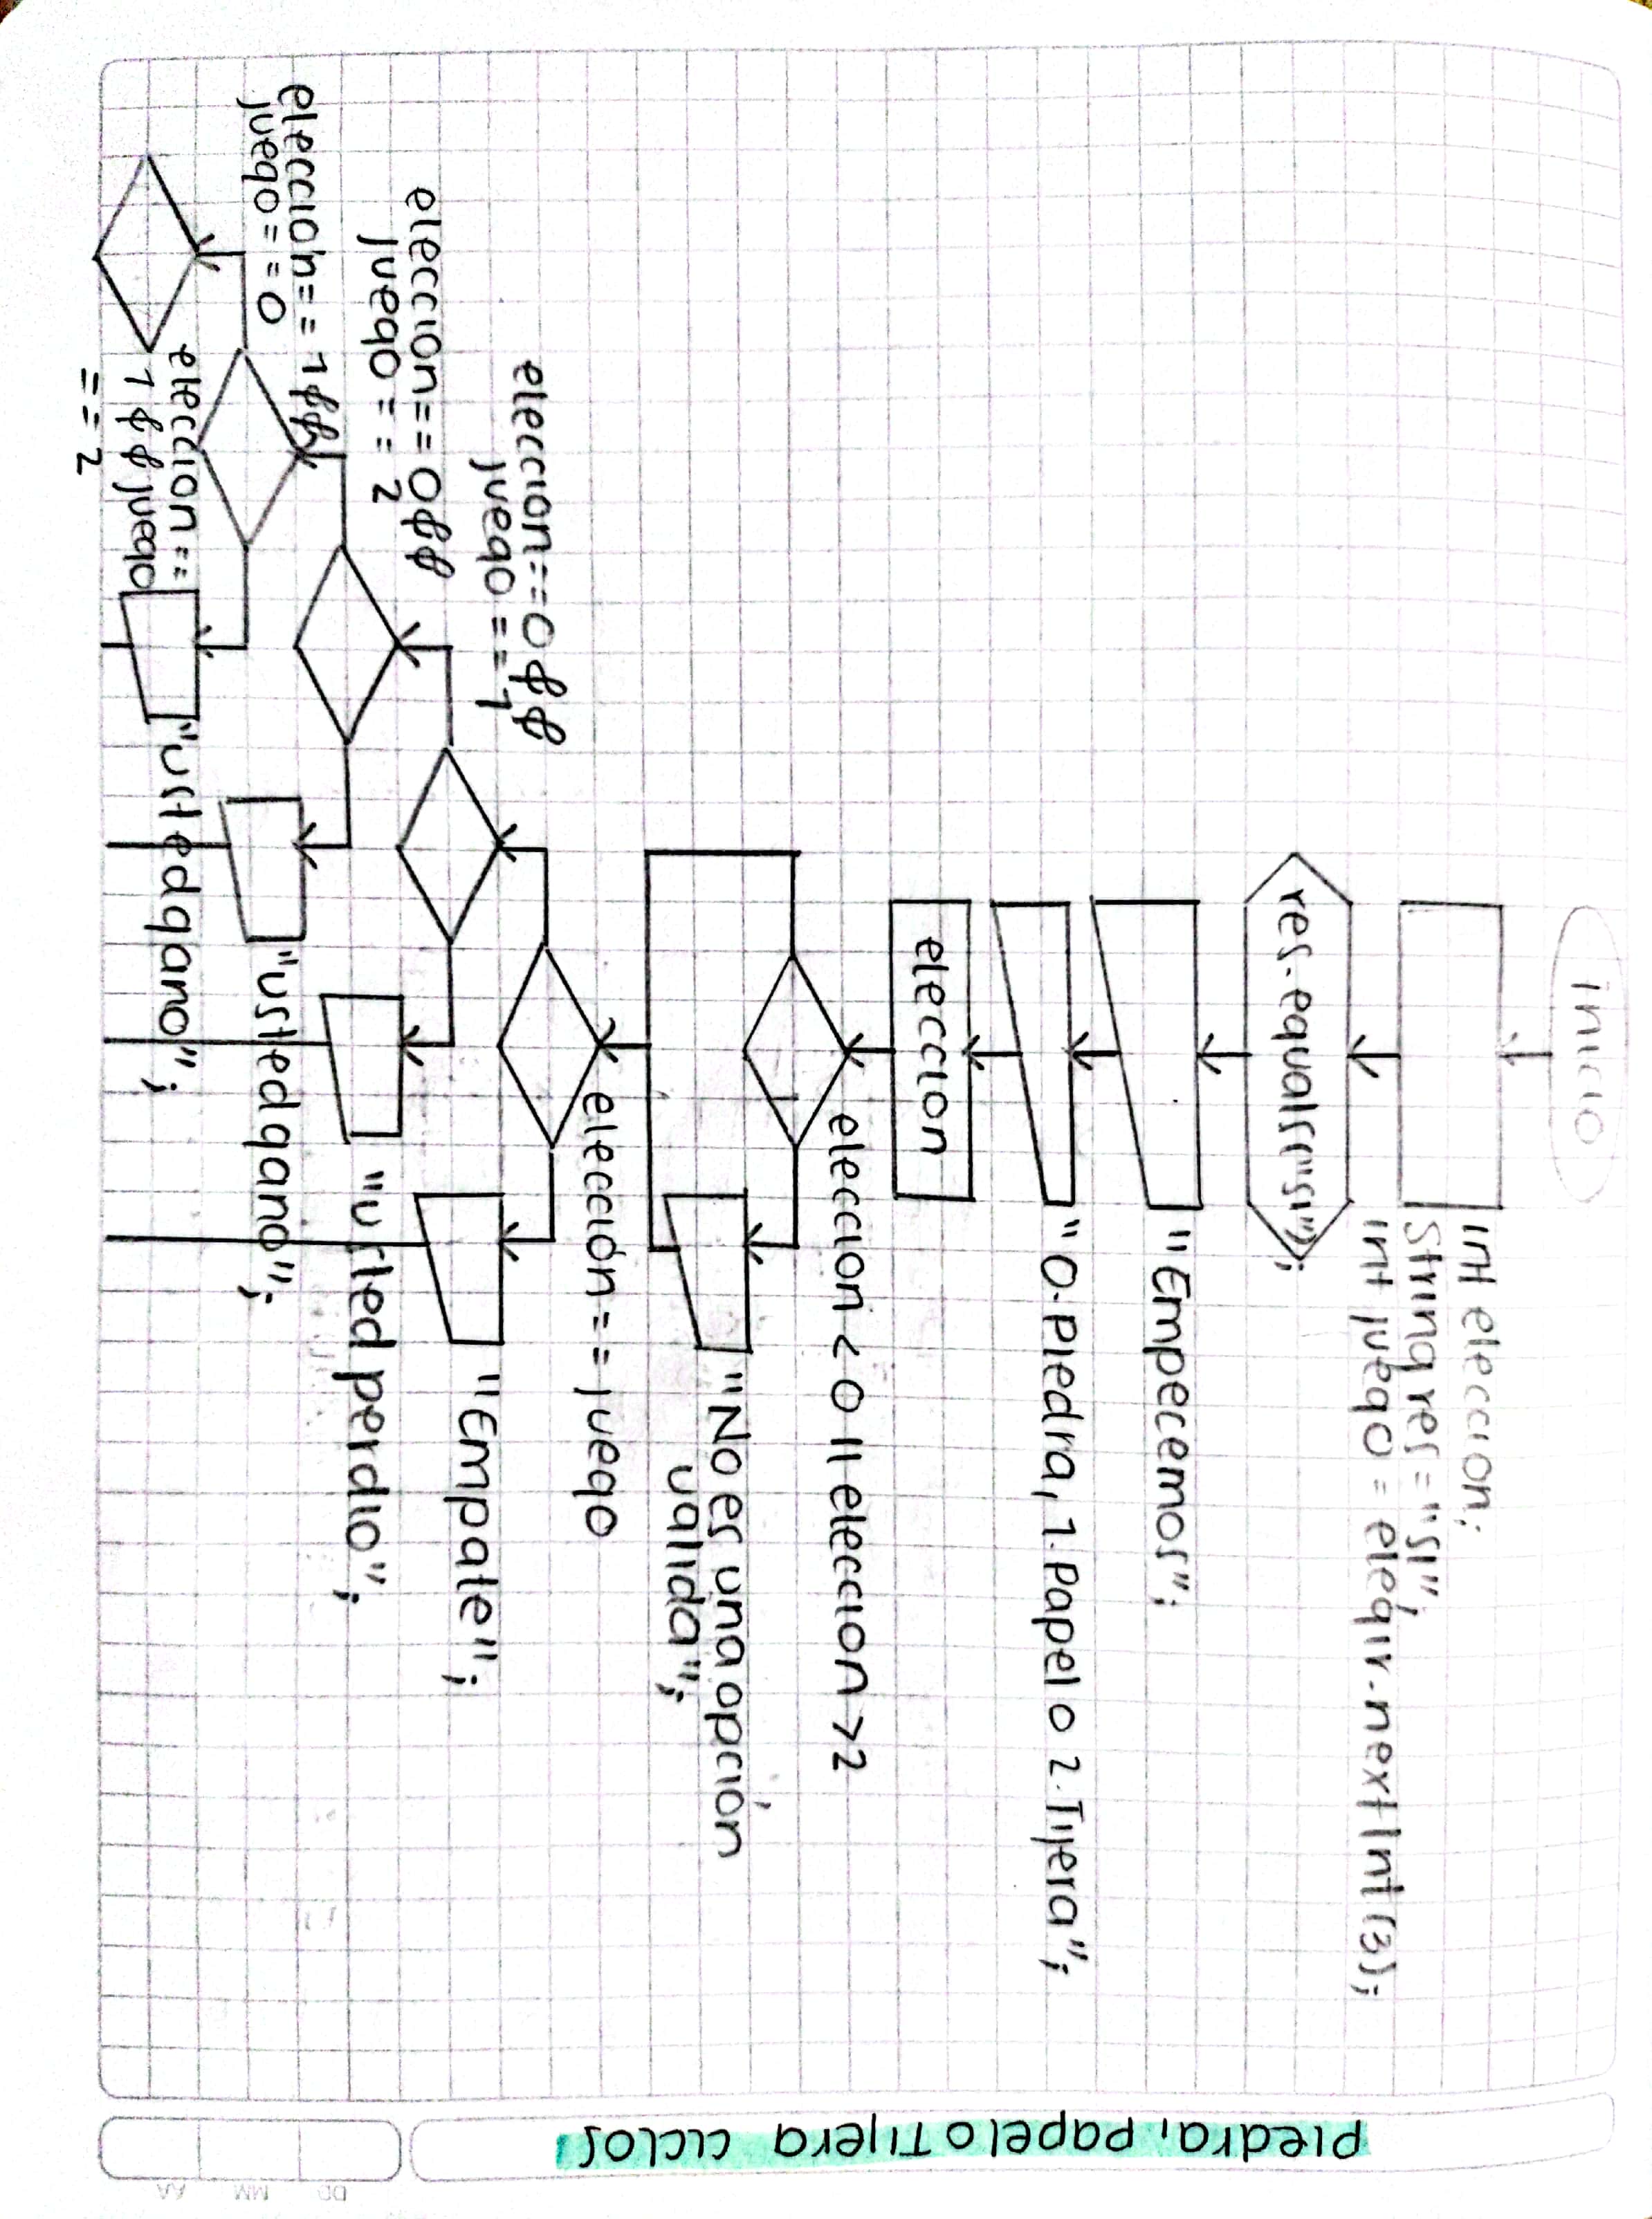 Piedra, papel o Tijera ciclos
DD MM AA
inicio
int eleccion;
String res = "si";
int juego = elegir.nextInt(3);
res.equals("si");
"Empecemos";
"0.Piedra, 1.Papel o 2.Tijera";
eleccion
eleccion < 0 || eleccion > 2
"No es una opción
valida";
elección == juego
"Empate";
eleccion == 0 &&
juego == 1
"usted perdio";
eleccion == 0 &&
juego == 2
"usted gano";
eleccion == 1 &&
juego == 0
"usted gano";
eleccion ==
1 && juego
== 2